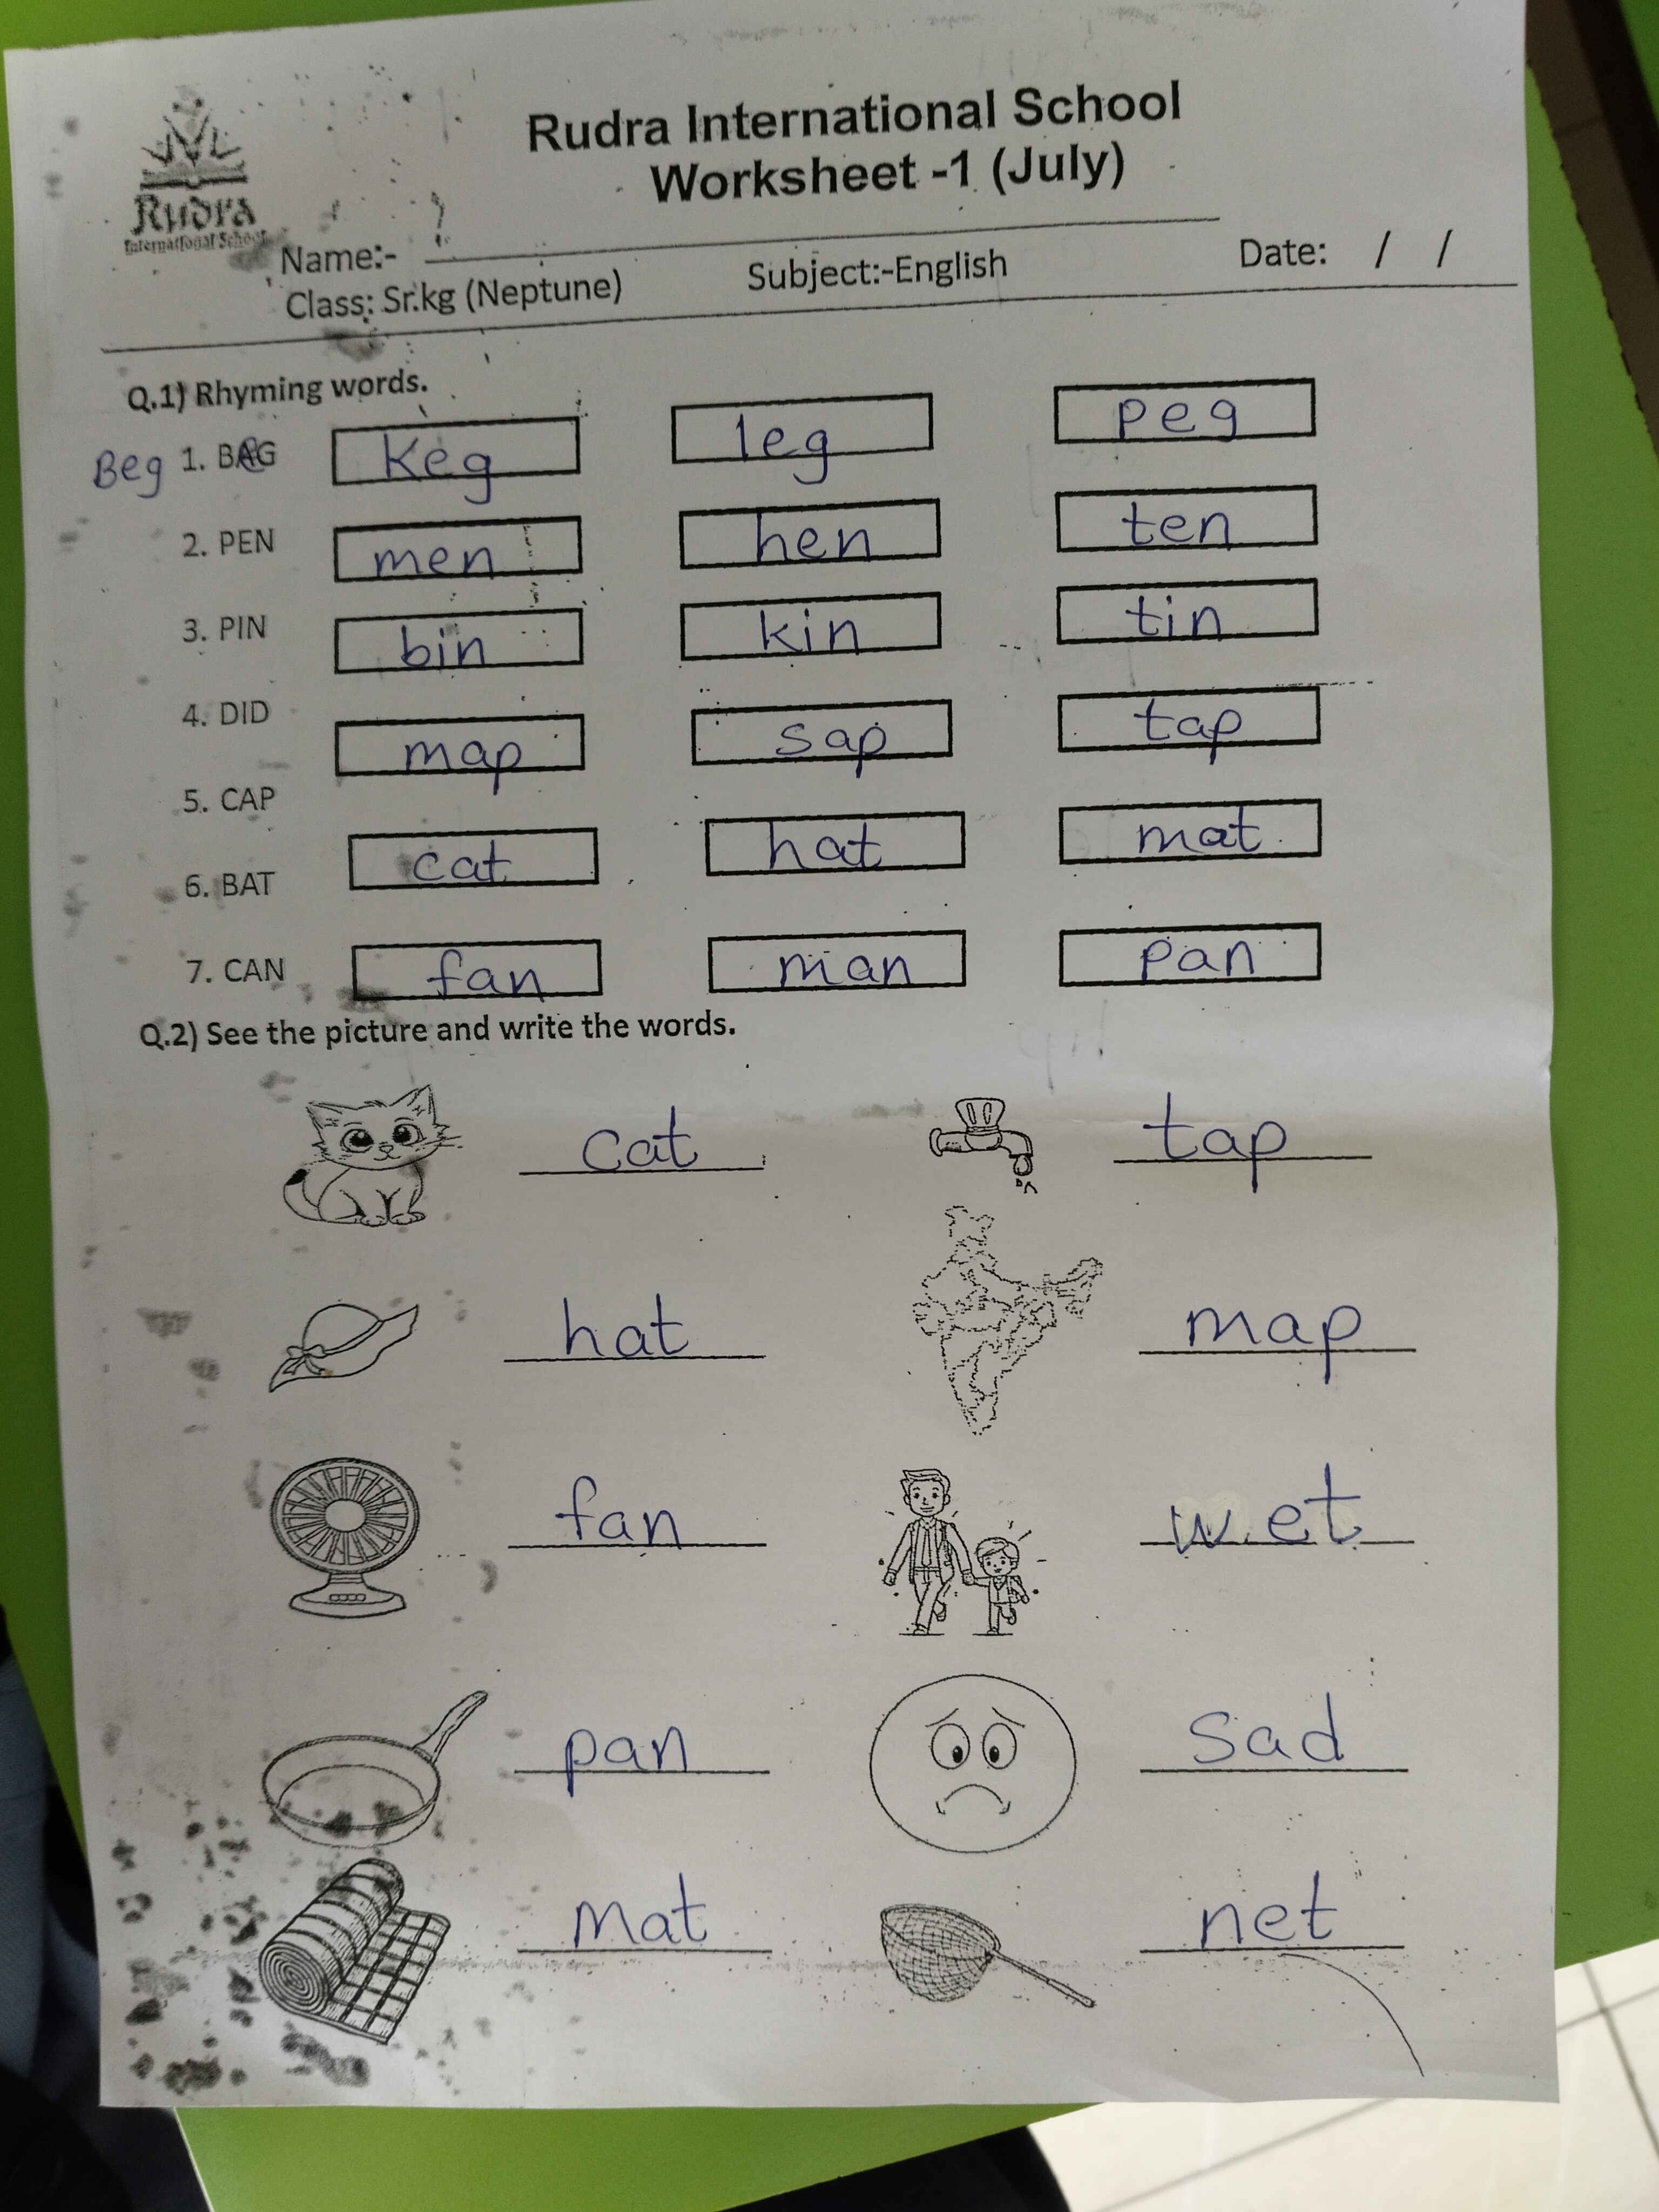 Rudra
International School
Rudra International School
Worksheet -1 (July)
Name:-
Class: Sr.kg (Neptune) Subject:-English Date: / /
Q.1) Rhyming words.
Beg 1. BeG keg leg peg
2. PEN men hen ten
3. PIN bin kin tin
4. DID map sap tap
5. CAP
6. BAT cat hat mat
7. CAN fan man pan
Q.2) See the picture and write the words.
cat tap
hat map
fan wet
pan sad
mat net